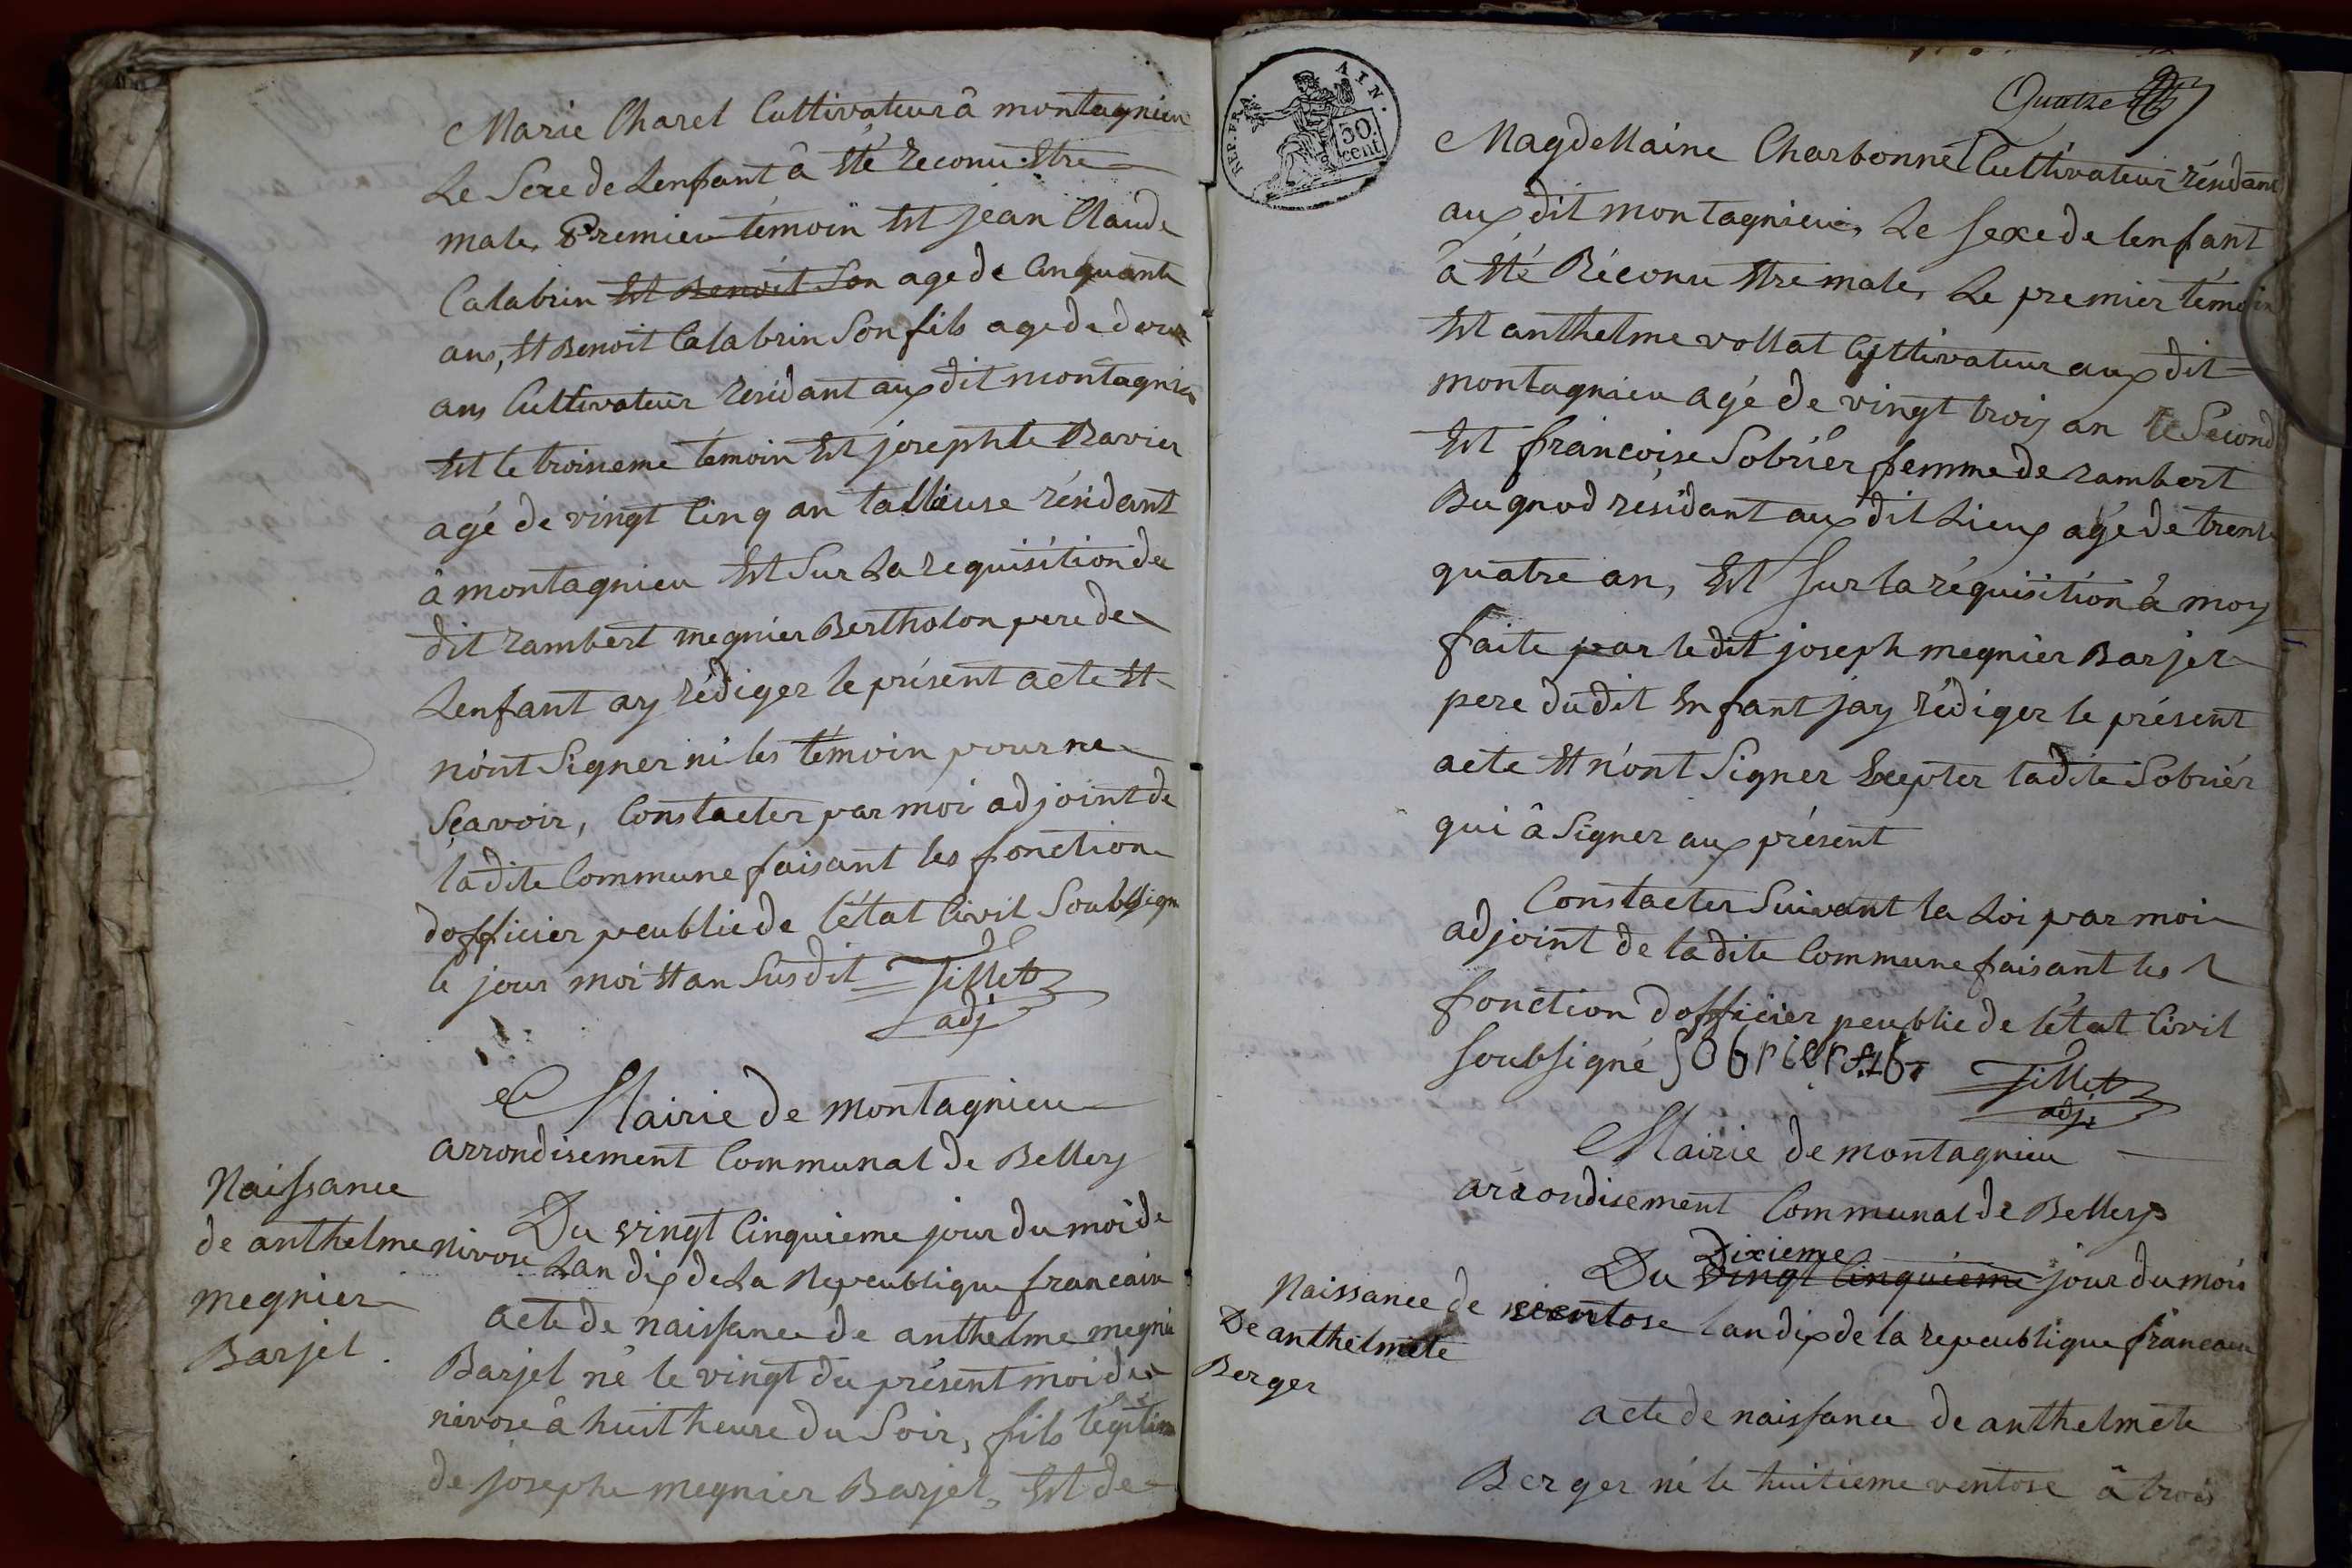 Marie Charel Cultivateur â montagnieu
Le Sexe de Lenfant â Eté reconu Etre
male, Premier témoin Est jean Claude
Calabrin Est Benoit Son age de Cinquante
ans, Et Benoit Calabrin Son fils age de douze
ans Cultivateur résidant aux dit montagnieu
Est le troisieme témoin Est josephte Ravier
agé de vingt Cinq an tallieuse résidant
â montagnieu Est Sur La requisition du
dit rambert megnier Bertholon pere de
Lenfant ay rédiger le présent acte Et
nont Signer ni les témoin pour ne
Sçavoir, Constater par moi adjoint de
ladite Commune faisant les fonction
dofficier peublic de létat Civil Soubsigné
le jour moi Et an Susdit Tillet
adj
Mairie de montagnieu
arrondisement Communal de Belley
Naissance
de anthelme
megnier
Barjel.
Du vingt Cinquieme jour du moi de
nivose Lan dix de La Repeublique francaise
acte de naissance de anthelme megnier
Barjel né le vingt du présent moi de
nivose â huit heure du Soir, fils légitime
de joseph megnier Barjel, Est de
REP. FRA. AIN.
50 cent
Quatre
Magdellaine Charbonnel Cultivateur résidant
aux dit montagnieu, Le Sexe de lenfant
â Eté Réconu Etre male, Le premier témoin
Est anthelme vollat Cultivateur aux dit
montagnieu agé de vingt trois an le Second
Est francoise Sobrier femme de rambert
Bugnod résidant aux dit Lieux agé de trente
quatre an, Est Sur la réquisition â moy
faite par le dit joseph megnier Barjel
pere du dit Enfant jay rédiger le présent
acte Et nont Signer Exepter ladite Sobrier
qui â Signer aux présent
Constater Suivant la Loi par moi
adjoint de ladite Commune faisant les
fonction dofficier peublic de létat Civil
soubsigné Sobrier Tillet
adj.
Mairie de montagnieu
arrondisement Communal de Belley
Naissance de
De anthelmete
Berger
Dixieme
Du vingt Cinquieme jour du mois
ventose lan dix de la repeublique francaise
acte de naissance de anthelmete
Berger né le huitieme ventose â trois